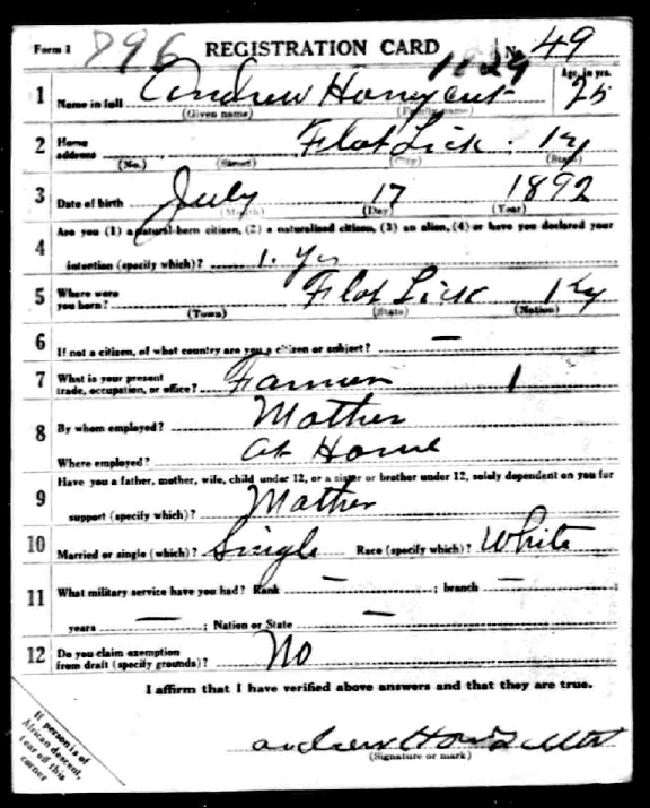 Form 1 896 REGISTRATION CARD No. 49
1829
1 Name in full Andrew Honeycut Age, in yrs. 25
(Given name) (Family name)
2 Home address Flat Lick Ky
(No.) (Street) (City) (State)
3 Date of birth July 17 1892
(Month) (Day) (Year)
4 Are you (1) a natural-born citizen, (2) a naturalized citizen, (3) an alien, (4) or have you declared your
intention (specify which)? 1. Yes
5 Where were you born? Flat Lick Ky
(Town) (State) (Nation)
6 If not a citizen, of what country are you a citizen or subject? —
7 What is your present trade, occupation, or office? Farmer 1
8 By whom employed? Mother
Where employed? at Home
9 Have you a father, mother, wife, child under 12, or a sister or brother under 12, solely dependent on you for
support (specify which)? Mother
10 Married or single (which)? Single Race (specify which)? White
11 What military service have you had? Rank — ; branch — ;
years — ; Nation or State —
12 Do you claim exemption from draft (specify grounds)? No
I affirm that I have verified above answers and that they are true.
If person is of
African descent,
tear off this
corner
andrew
(Signature or mark)